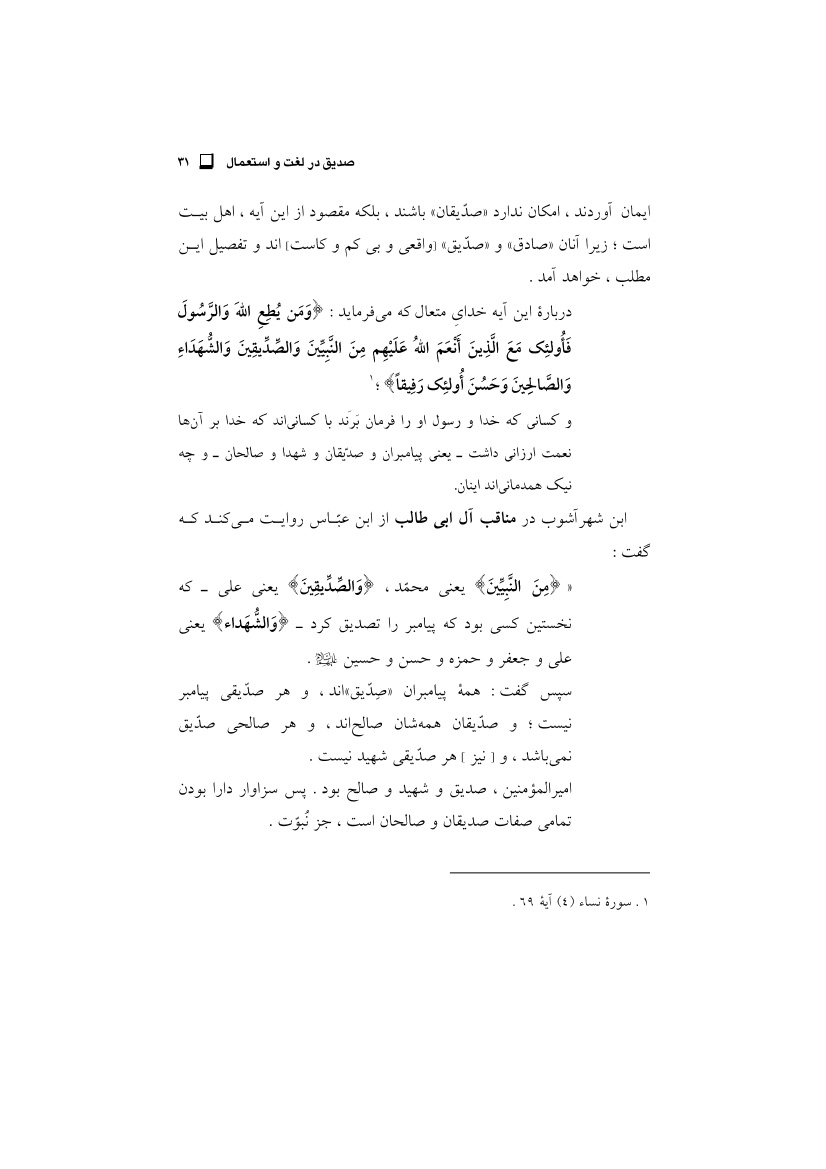 صدیق در لغت و استعمال ❏ ۳۱
ایمان آوردند ، امکان ندارد «صدّیقان» باشند ، بلکه مقصود از این آیه ، اهل بیت
است ؛ زیرا آنان «صادق» و «صدّیق» [واقعی و بی کم و کاست] اند و تفصیل این
مطلب ، خواهد آمد .
دربارهٔ این آیه خدایِ متعال که می‌فرماید : ﴿وَمَن يُطِعِ اللهَ وَالرَّسُولَ
فَأُولئِک مَعَ الَّذِينَ أَنْعَمَ اللهُ عَلَيْهِم مِنَ النَّبِيِّينَ وَالصِّدِّيقِينَ وَالشُّهَدَاءِ
وَالصَّالِحِينَ وَحَسُنَ أُولئِک رَفِيقاً﴾ ؛۱
و کسانی که خدا و رسول او را فرمان بَرَند با کسانی‌اند که خدا بر آن‌ها
نعمت ارزانی داشت ـ یعنی پیامبران و صدّیقان و شهدا و صالحان ـ و چه
نیک همدمانی‌اند اینان.
ابن شهرآشوب در مناقب آل ابی طالب از ابن عبّاس روایت می‌کند که
گفت :
« ﴿مِنَ النَّبِيِّينَ﴾ یعنی محمّد ، ﴿وَالصِّدِّيقِينَ﴾ یعنی علی ـ که
نخستین کسی بود که پیامبر را تصدیق کرد ـ ﴿وَالشُّهَداء﴾ یعنی
علی و جعفر و حمزه و حسن و حسین .
سپس گفت : همهٔ پیامبران «صِدّیق»اند ، و هر صدّیقی پیامبر
نیست ؛ و صدّیقان همه‌شان صالح‌اند ، و هر صالحی صدّیق
نمی‌باشد ، و [ نیز ] هر صدّیقی شهید نیست .
امیرالمؤمنین ، صدیق و شهید و صالح بود . پس سزاوار دارا بودن
تمامی صفات صدیقان و صالحان است ، جز نُبوّت .
۱ . سورهٔ نساء (٤) آیهٔ ٦٩ .